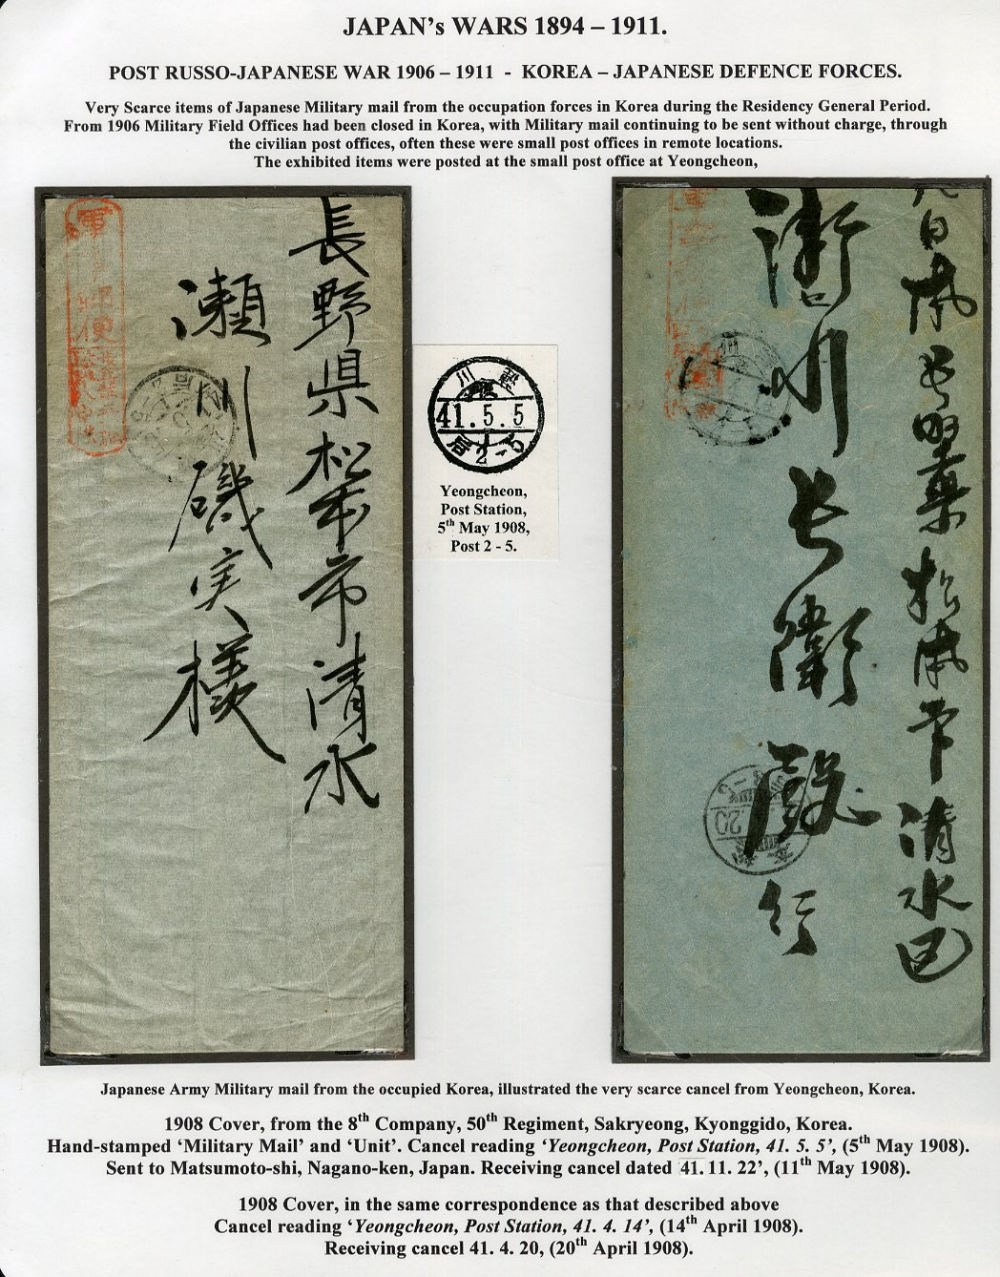 JAPAN's WARS 1894 – 1911.
POST RUSSO-JAPANESE WAR 1906 – 1911 - KOREA – JAPANESE DEFENCE FORCES.
Very Scarce items of Japanese Military mail from the occupation forces in Korea during the Residency General Period.
From 1906 Military Field Offices had been closed in Korea, with Military mail continuing to be sent without charge, through
the civilian post offices, often these were small post offices in remote locations.
The exhibited items were posted at the small post office at Yeongcheon,
長野県松本市清水
瀬川磯実様
軍事郵便
川
41.5.5
局
2-5
Yeongcheon,
Post Station,
5th May 1908,
Post 2 - 5.
松
清水
20
Japanese Army Military mail from the occupied Korea, illustrated the very scarce cancel from Yeongcheon, Korea.
1908 Cover, from the 8th Company, 50th Regiment, Sakryeong, Kyonggido, Korea.
Hand-stamped ‘Military Mail’ and ‘Unit’. Cancel reading ‘Yeongcheon, Post Station, 41. 5. 5’, (5th May 1908).
Sent to Matsumoto-shi, Nagano-ken, Japan. Receiving cancel dated 41. 11. 22’, (11th May 1908).
1908 Cover, in the same correspondence as that described above
Cancel reading ‘Yeongcheon, Post Station, 41. 4. 14’, (14th April 1908).
Receiving cancel 41. 4. 20, (20th April 1908).